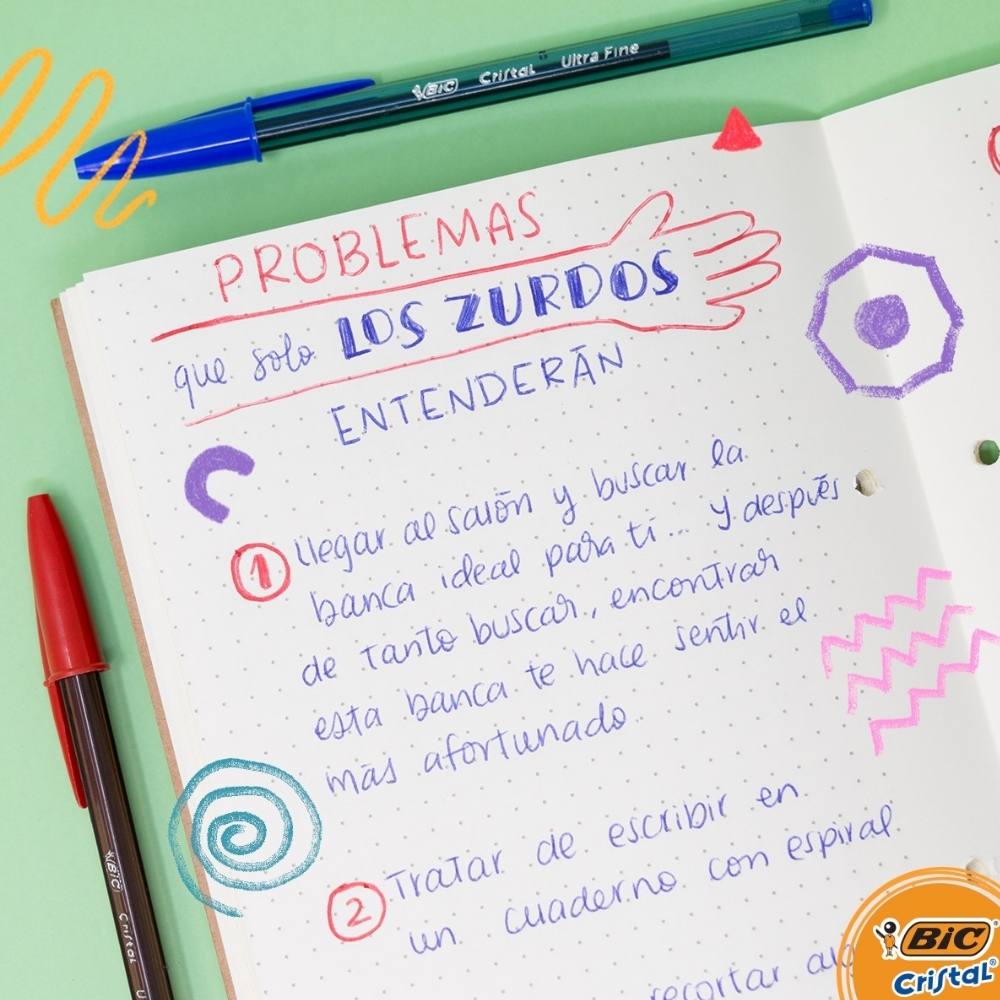 BIC Cristal Ultra Fine
PROBLEMAS
que solo LOS ZURDOS
ENTENDERÁN
1 llegar al salón y buscar la
banca ideal para ti... y después
de tanto buscar, encontrar
esta banca te hace sentir el
más afortunado
2 Tratar de escribir en
un cuaderno con espiral
recortar
BIC Cristal
BIC
Cristal